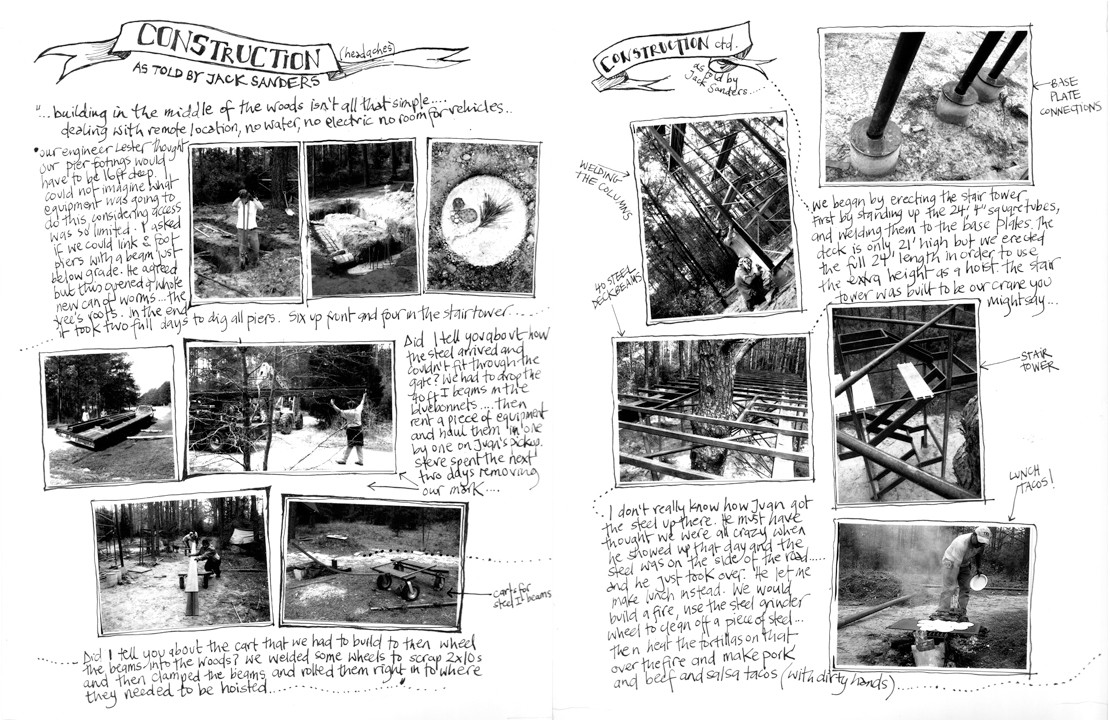 CONSTRUCTION (headaches)
AS TOLD BY JACK SANDERS
"...building in the middle of the woods isn't all that simple....
dealing with remote location, no water, no electric no room for vehicles..
• our engineer Lester thought
our pier footings would
have to be 16ft deep.
could not imagine what
equipment was going to
do this considering access
was so limited. I asked
if we could link 8 foot
piers with a beam just
below grade. He agreed
but this opened a whole
new can of worms...the
tree's roots. In the end
it took two full days to dig all piers. Six up front and four in the stair tower....
Did I tell you about how
the steel arrived and
couldn't fit through the
gate? We had to drop the
40ft I beams in the
bluebonnets .... then
rent a piece of equipment
and haul them in one
by one on Juan's pickup.
Steve spent the next
two days removing
our mark....
carts for
steel I beams
Did I tell you about the cart that we had to build to then wheel
the beams into the woods? We welded some wheels to scrap 2x10s
and then clamped the beams and rolled them right in to where
they needed to be hoisted...
CONSTRUCTION ctd.
as told by
Jack Sanders....
BASE
PLATE
CONNECTIONS
WELDING
THE COLUMNS
we began by erecting the stair tower
first by standing up the 24' 4" square tubes,
and welding them to the base plates. The
deck is only 21' high but we erected
the full 24' length in order to use
the extra height as a hoist. the stair
tower was built to be our crane you
might say...
40 STEEL
DECKBEAMS
STAIR
TOWER
LUNCH
TACOS!
I don't really know how Juan got
the steel up there. He must have
thought we were all crazy when
he showed up that day and the
steel was on the side of the road.....
and he just took over. He let me
make lunch instead. We would
build a fire, use the steel grinder
wheel to clean off a piece of steel...
then heat the tortillas on that
over the fire and make pork
and beef and salsa tacos (with dirty hands)